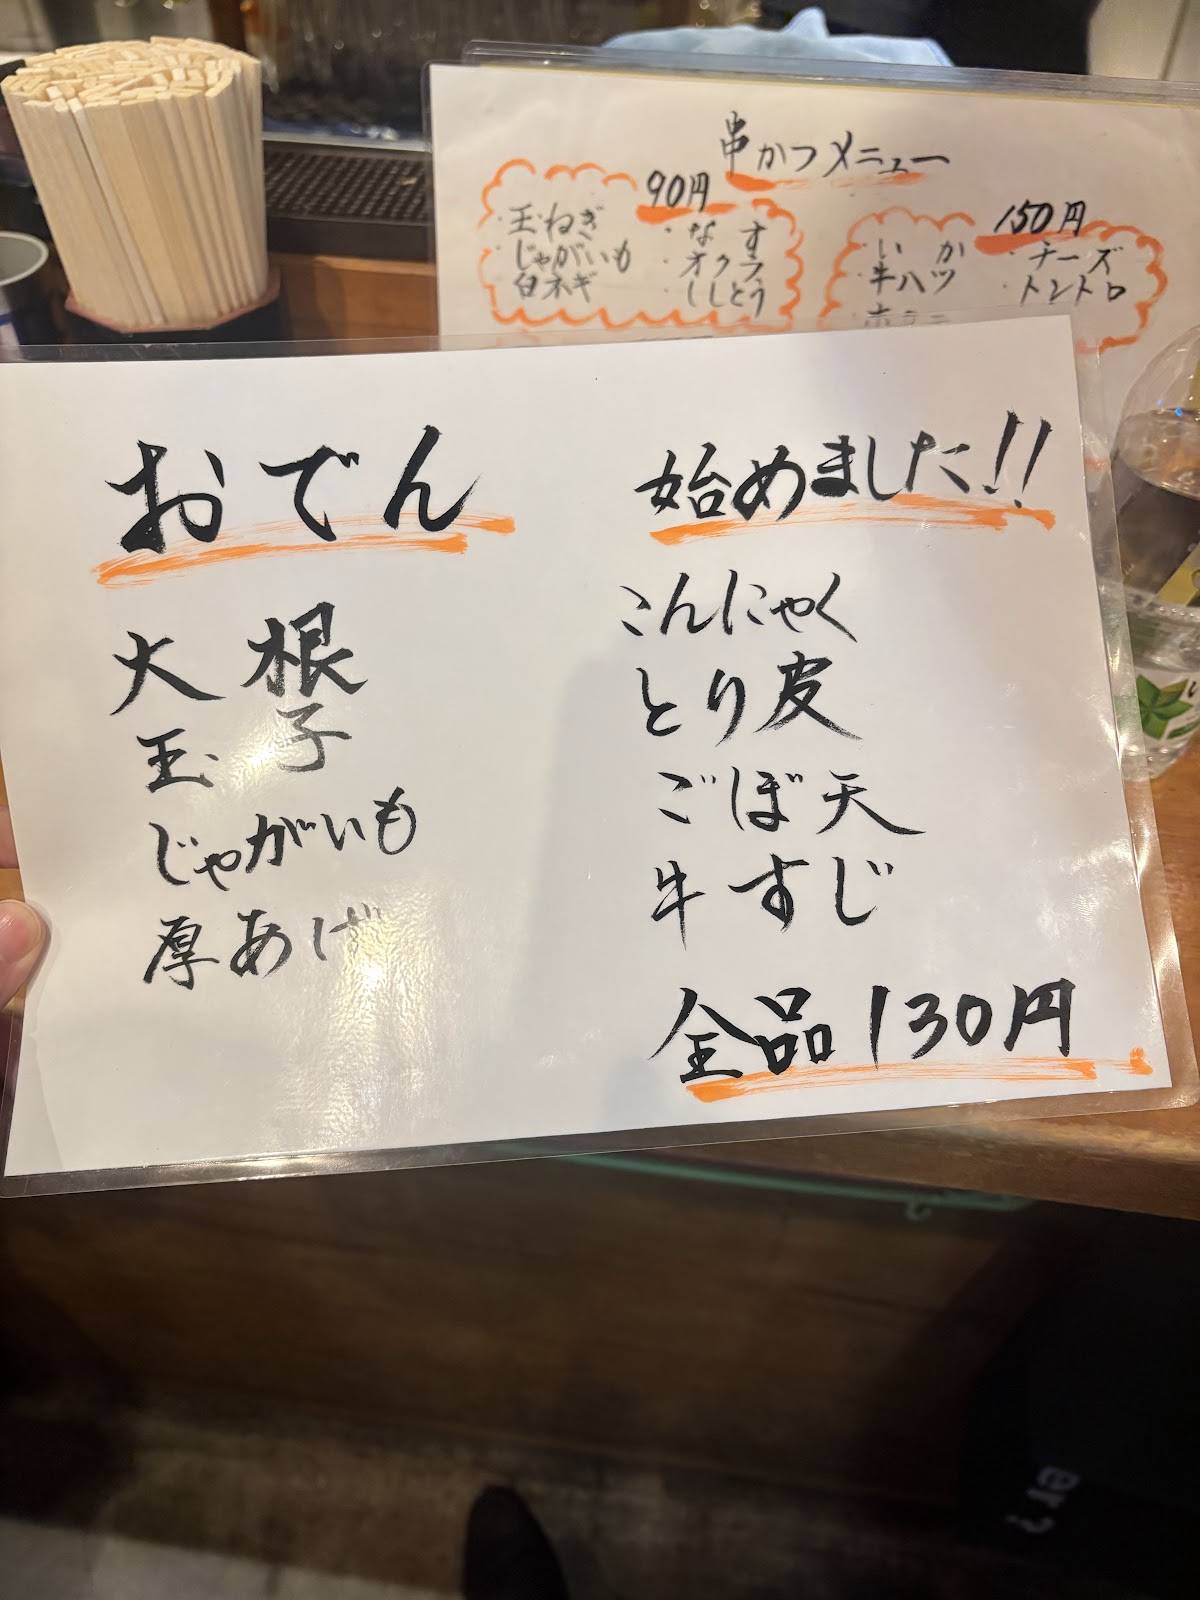 串かつメニュー
90円
・玉ねぎ ・なす
・じゃがいも ・オクラ
白ネギ ・ししとう
150円
・いか ・チーズ
牛ハツ ・トントロ
おでん 始めました!!
大根
玉子
じゃがいも
厚あげ
こんにゃく
とり皮
ごぼ天
牛すじ
全品130円
er?